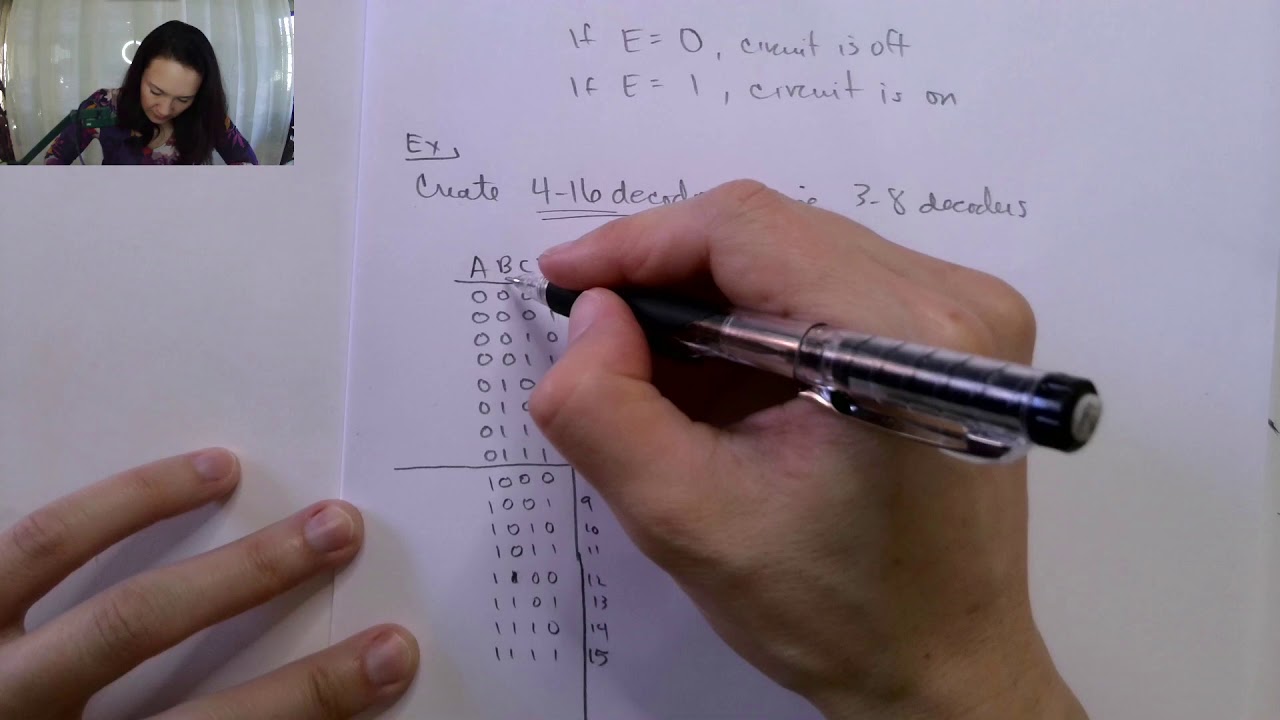 If E = 0, circuit is off
If E = 1, circuit is on
Ex,
Create 4-16 3-8 decoders
A B C
0 0
0 0 0 1
0 0 1 0
0 0 1 1
0 1 0
0 1
0 1 1
0 1 1 1
1 0 0 0
1 0 0 1 9
1 0 1 0 10
1 0 1 1 11
1 1 0 0 12
1 1 0 1 13
1 1 1 0 14
1 1 1 1 15